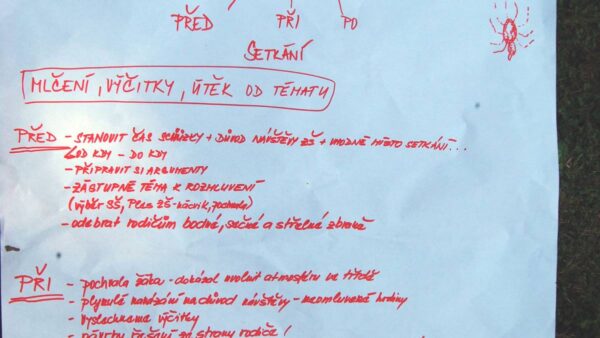 PŘED PŘI PO
SETKÁNÍ
MLČENÍ, VÝČITKY, ÚTĚK OD TÉMATU
PŘED - STANOVIT ČAS SCHŮZKY + DŮVOD NÁVŠTĚVY ZŠ + VHODNÉ MÍSTO SETKÁNÍ...
OD KDY - DO KDY
- PŘIPRAVIT SI ARGUMENTY
- ZÁSTUPNÉ TÉMA K ROZMLUVENÍ
(výběr SŠ, Ples ZŠ - nácvik, pochvala)
- odebrat rodičům bodné, sečné a střelné zbraně
PŘI - pochvala žáka - dokázal uvolnit atmosféru ve třídě
- plynulé navázání na důvod návštěvy - neomluvené hodiny
- vyslechneme výčitky
- návrhy řešení ze strany rodiče!